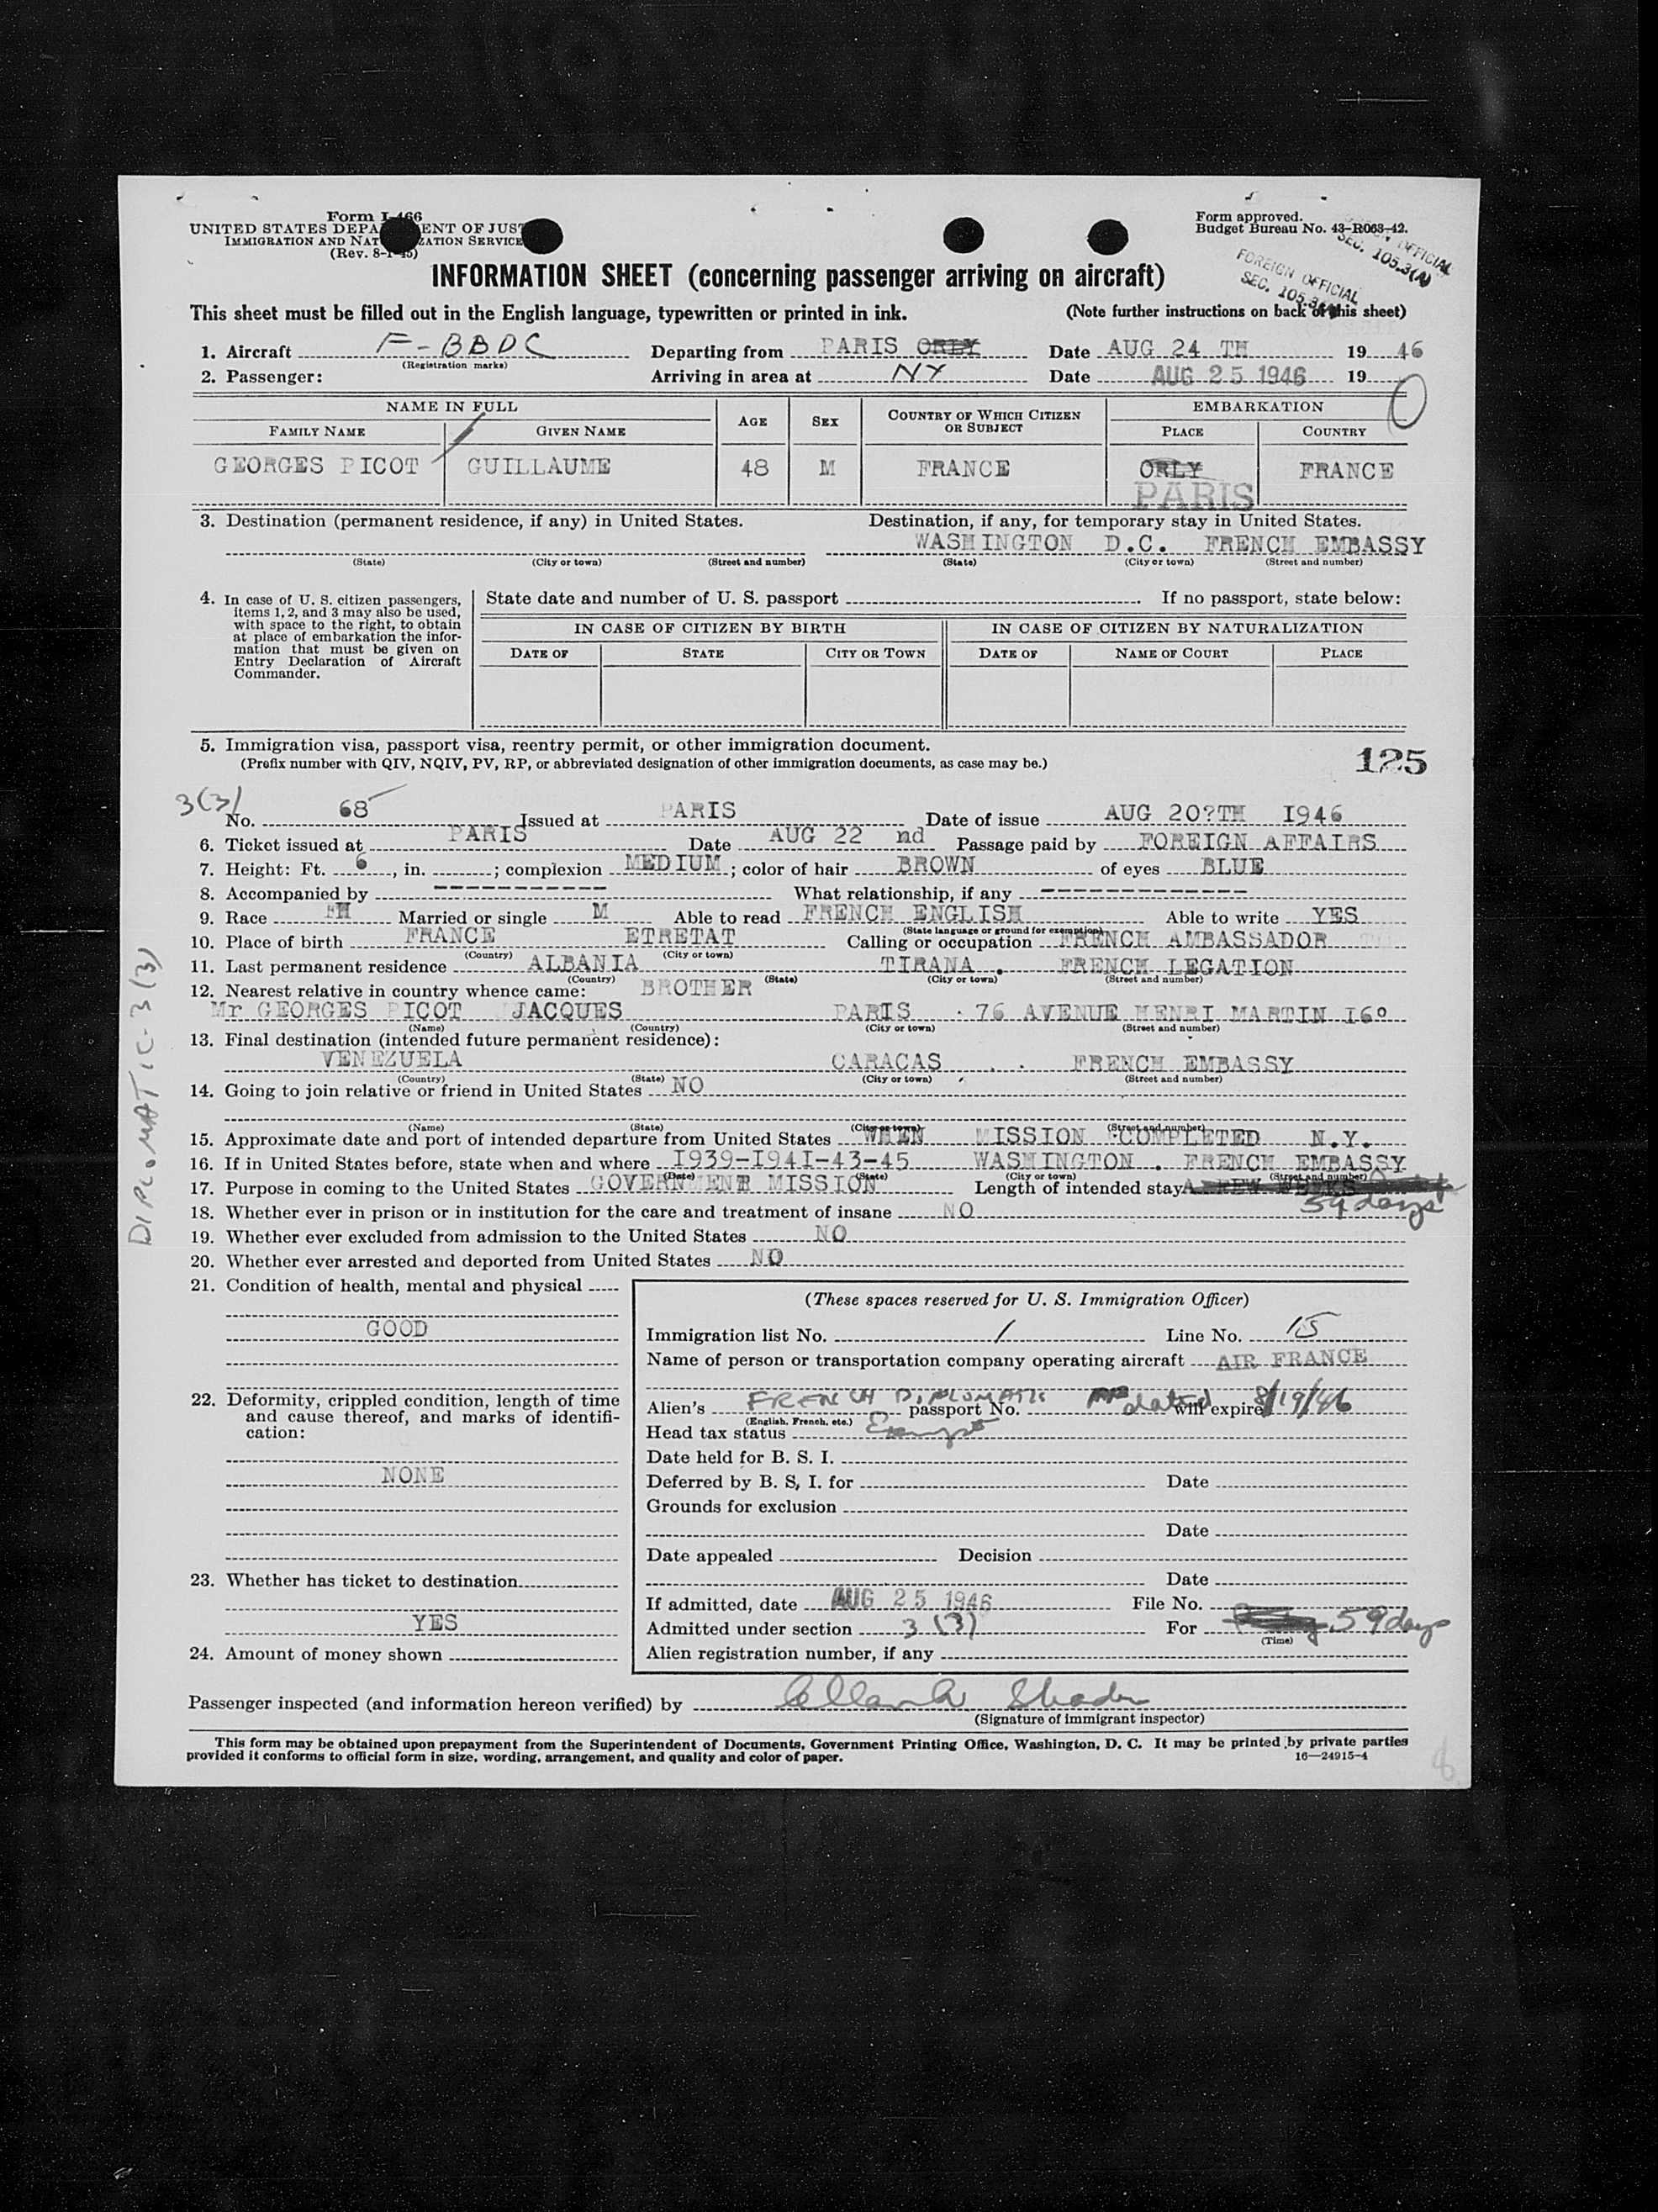 Form I-466
UNITED STATES DEPA ENT OF JUST
IMMIGRATION AND NAT ZATION SERVICE
(Rev. 8-1-45)
Form approved.
Budget Bureau No. 43-R063-42.
FOREIGN OFFICIAL
SEC. 105.3(A)
OFFICIAL
SEC. 105.3(A)
INFORMATION SHEET (concerning passenger arriving on aircraft)
This sheet must be filled out in the English language, typewritten or printed in ink. (Note further instructions on back of this sheet)
1. Aircraft F-BBDC Departing from PARIS ORLY Date AUG 24 TH 19 46
(Registration marks)
2. Passenger: Arriving in area at NY Date AUG 25 1946 19
NAME IN FULL AGE SEX COUNTRY OF WHICH CITIZEN OR SUBJECT EMBARKATION
FAMILY NAME GIVEN NAME PLACE COUNTRY
GEORGES PICOT GUILLAUME 48 M FRANCE ORLY FRANCE
PARIS
3. Destination (permanent residence, if any) in United States. Destination, if any, for temporary stay in United States.
WASHINGTON D.C. FRENCH EMBASSY
(State) (City or town) (Street and number) (State) (City or town) (Street and number)
4. In case of U. S. citizen passengers, items 1, 2, and 3 may also be used, with space to the right, to obtain at place of embarkation the information that must be given on Entry Declaration of Aircraft Commander.
State date and number of U. S. passport If no passport, state below:
IN CASE OF CITIZEN BY BIRTH IN CASE OF CITIZEN BY NATURALIZATION
DATE OF STATE CITY OR TOWN DATE OF NAME OF COURT PLACE
5. Immigration visa, passport visa, reentry permit, or other immigration document.
(Prefix number with QIV, NQIV, PV, RP, or abbreviated designation of other immigration documents, as case may be.)
125
3(3)
No. 68 Issued at PARIS Date of issue AUG 20?TH I946
6. Ticket issued at PARIS Date AUG 22 nd Passage paid by FOREIGN AFFAIRS
7. Height: Ft. 6, in. ; complexion MEDIUM ; color of hair BROWN of eyes BLUE
8. Accompanied by ------------ What relationship, if any --------------
9. Race FH Married or single M Able to read FRENCH ENGLISH Able to write YES
(State language or ground for exemption)
10. Place of birth FRANCE ETRETAT Calling or occupation FRENCH AMBASSADOR
(Country) (City or town)
11. Last permanent residence ALBANIA TIRANA . FRENCH LEGATION
(Country) (State) (City or town) (Street and number)
12. Nearest relative in country whence came: BROTHER
Mr GEORGES PICOT JACQUES PARIS . 76 AVENUE HENRI MARTIN I6°
(Name) (Country) (City or town) (Street and number)
13. Final destination (intended future permanent residence):
VENEZUELA CARACAS . . FRENCH EMBASSY
(Country) (State) (City or town) (Street and number)
14. Going to join relative or friend in United States NO
(Name) (State) (City or town) (Street and number)
15. Approximate date and port of intended departure from United States WHEN MISSION COMPLETED N.Y.
16. If in United States before, state when and where I939-I94I-43-45 WASHINGTON . FRENCH EMBASSY
(Date) (State) (City or town) (Street and number)
17. Purpose in coming to the United States GOVERNMENT MISSION Length of intended stay A FEW WEEKS
59 days
18. Whether ever in prison or in institution for the care and treatment of insane NO
19. Whether ever excluded from admission to the United States NO
20. Whether ever arrested and deported from United States NO
21. Condition of health, mental and physical
GOOD
22. Deformity, crippled condition, length of time and cause thereof, and marks of identification:
NONE
23. Whether has ticket to destination
YES
24. Amount of money shown
(These spaces reserved for U. S. Immigration Officer)
Immigration list No. 1 Line No. 15
Name of person or transportation company operating aircraft AIR FRANCE
Alien's FRENCH DIPLOMATIC passport No. dated will expire 8/19/46
(English, French, etc.)
Head tax status Exempt
Date held for B. S. I.
Deferred by B. S. I. for Date
Grounds for exclusion
Date
Date appealed Decision
Date
If admitted, date AUG 25 1946 File No.
Admitted under section 3 (3) For 59 days
(Time)
Alien registration number, if any
Passenger inspected (and information hereon verified) by
(Signature of immigrant inspector)
This form may be obtained upon prepayment from the Superintendent of Documents, Government Printing Office, Washington, D. C. It may be printed by private parties
provided it conforms to official form in size, wording, arrangement, and quality and color of paper. 16—24915-4
DIPLOMATIC-3(3)